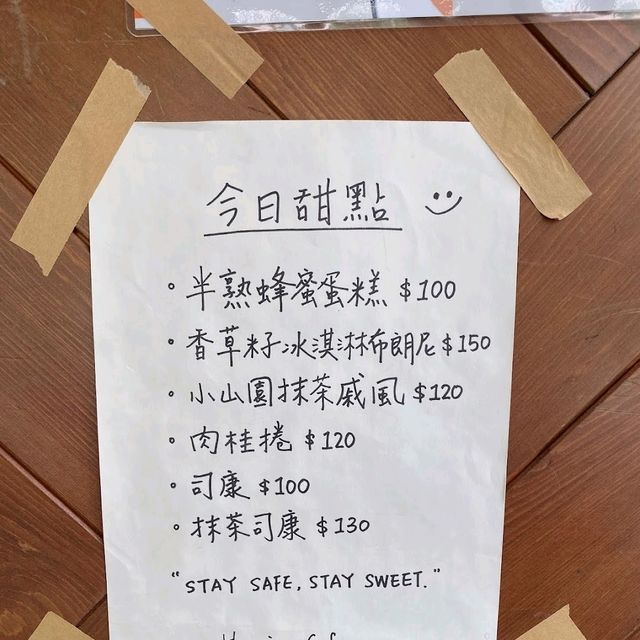 今日甜點
半熟蜂蜜蛋糕 $100
香草籽冰淇淋布朗尼 $150
小山園抹茶戚風 $120
肉桂捲 $120
司康 $100
抹茶司康 $130
"STAY SAFE, STAY SWEET."